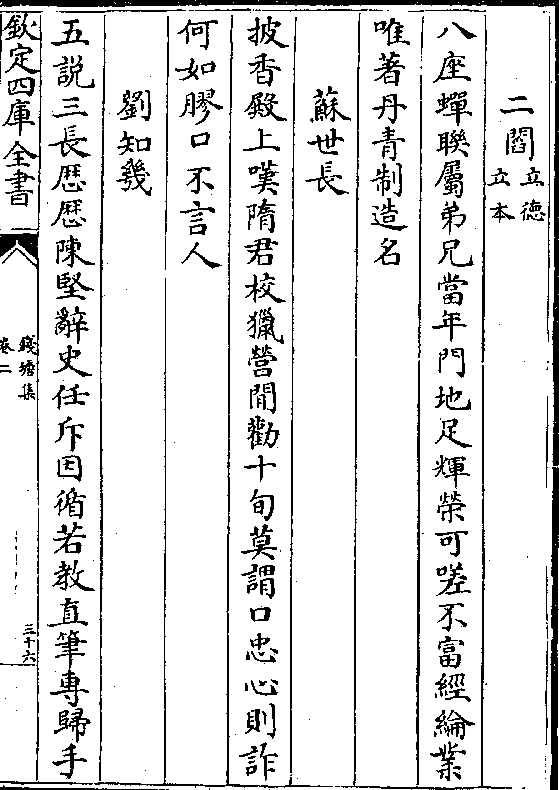 二閻立德立本
八座蟬聯屬弟兄當年門地足輝榮可嗟不富經綸業
唯著丹青制造名
蘇世長
披香殿上嘆隋君校獵營間勸十旬莫謂口忠心則詐
何如膠口不言人
劉知幾
五説三長厯厯陳堅辭史任斥因循若教直筆專歸手
欽定四庫全書
錢塘集
卷二
三十六